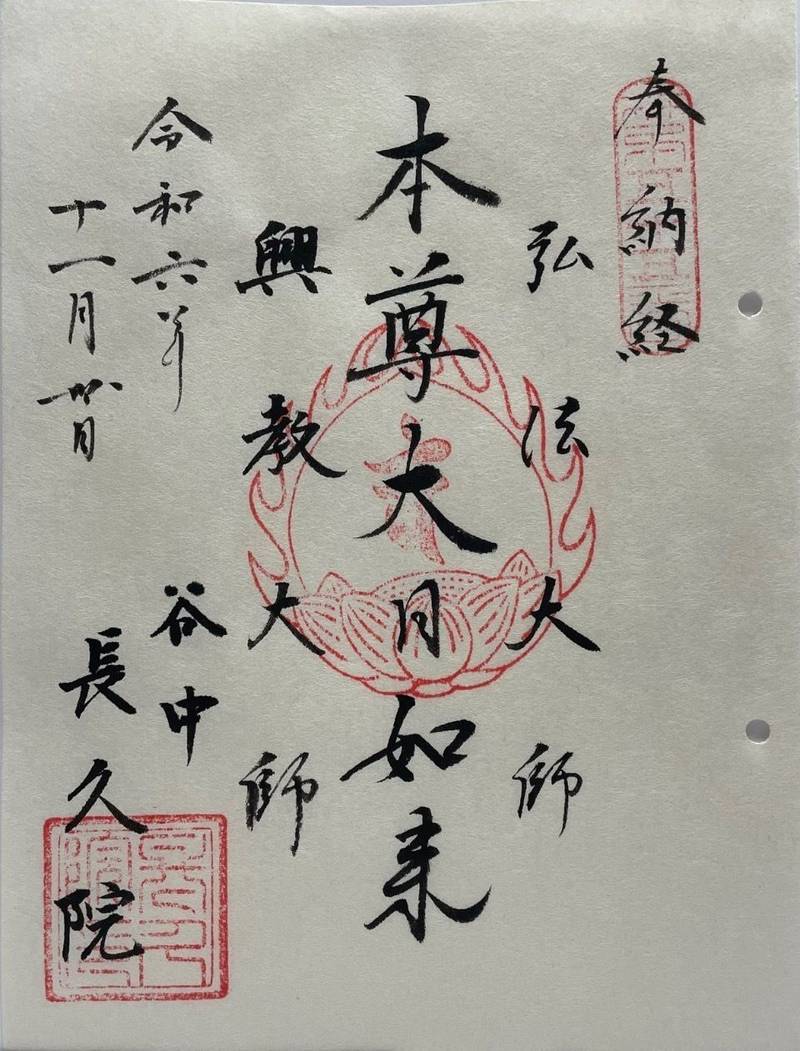 奉納経
弘法大師
本尊大日如来
興教大師
令和六年
十一月廿日
谷中
長久院